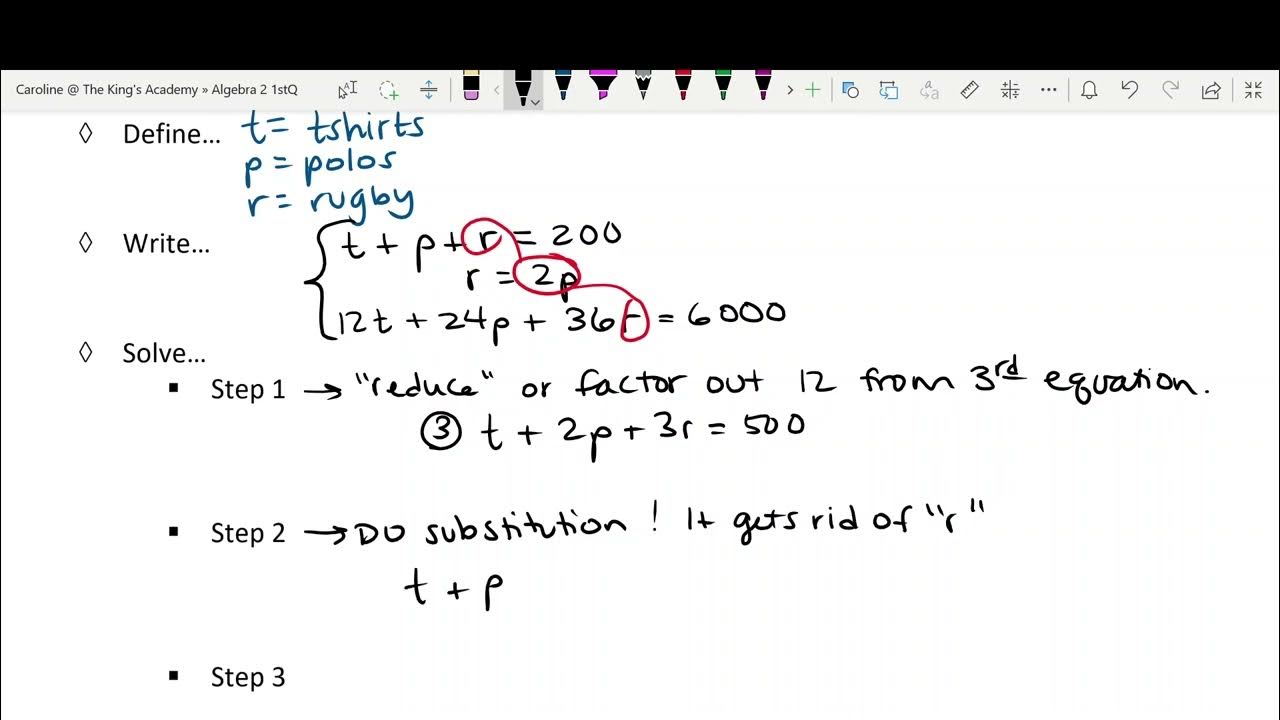 Caroline @ The King's Academy » Algebra 2 1stQ
◊ Define... t = tshirts
p = polos
r = rugby
◊ Write... t + p + r = 200
r = 2p
12t + 24p + 36r = 6000
◊ Solve...
▪ Step 1 → "reduce" or factor out 12 from 3rd equation.
③ t + 2p + 3r = 500
▪ Step 2 → Do substitution! It gets rid of "r"
t + p
▪ Step 3